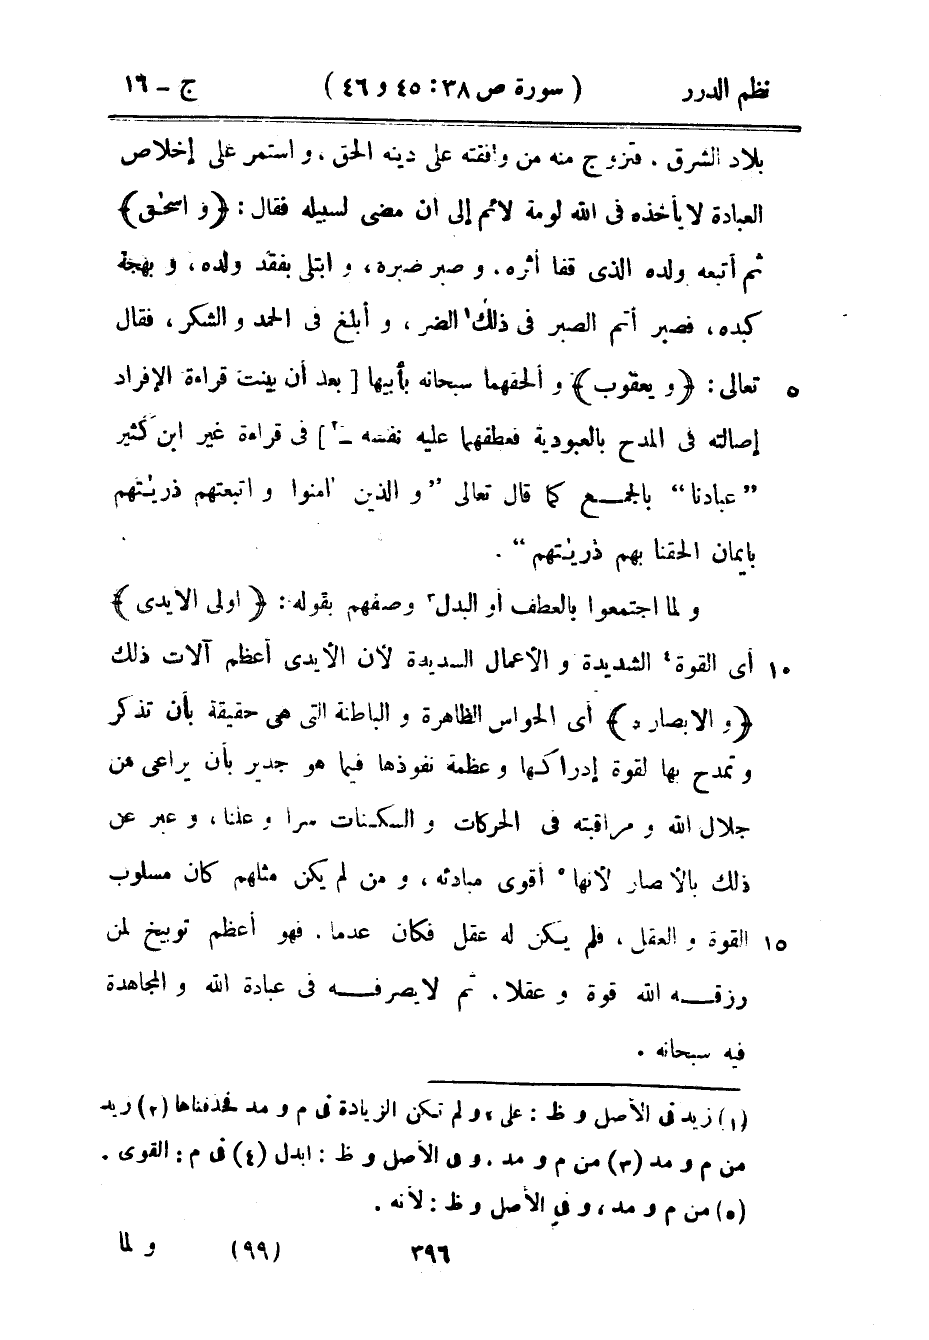 نظم الدرر ( سورة ص ٣٨ : ٤٥ و ٤٦ ) ج – ١٦
بلاد الشرق . فتزوج منه من وافقته على دينه الحق ، و استمر على إخلاص
العبادة لا يأخذه فى الله لومة لائم إلى ان مضى لسبيله فقال : ﴿ و اسحٰق ﴾
ثم أتبعه ولده الذى قفا أثره . و صبر صبره ، و ابتلى بفقد ولده ، و بهجة
كبده ، فصبر أتم الصبر فى ذلك١ الضر ، و أبلغ فى الحمد و الشكر ، فقال
٥ تعالى : ﴿ و يعقوب ﴾ و ألحقهما سبحانه بأبيها [ بعد أن بينت قراءة الإفراد
إصالته فى المدح بالعبودية فعطفهما عليه نفسه –٢ ] فى قراءة غير ابن كثير
” عبادنا “ بالجمـــع كما قال تعالى ” و الذين اٰمنوا و اتبعتهم ذريٰتهم
بايمان الحقنا بهم ذريٰتهم “ .
و لما اجتمعوا بالعطف أو البدل٣ وصفهم بقوله : ﴿ اولى الايدى ﴾
١٠ أى القوة٤ الشديدة و الأعمال السديدة لأن الأيدى أعظم آلات ذلك
﴿ و الابصار ه ﴾ أى الحواس الظاهرة و الباطنة التى هى حقيقة بأن تذكر
و تمدح بها لقوة إدراكها و عظمة نفوذها فيما هو جدير بأن يراعى من
جلال الله و مراقبته فى الحركات و السكنات سرا و علنا ، و عبر عن
ذلك بالأبصار لأنها٥ أقوى مبادئه ، و من لم يكن مثلهم كان مسلوب
١٥ القوة و العقل ، فلم يكن له عقل فكان عدما . فهو أعظم توبيخ لمن
رزقـــه الله قوة و عقلا . ثم لا يصرفـــه فى عبادة الله و المجاهدة
فيه سبحانه .
(١) زيد فى الأصل و ظ : على ، و لم تكن الزيادة فى م و مد فحذفناها (٢) زيد
من م و مد (٣) من م و مد . و فى الأصل و ظ : ابدل (٤) فى م : القوى .
(٥) من م و مد ، و فى الأصل و ظ : لأنه .
٣٩٦ (٩٩) و لما